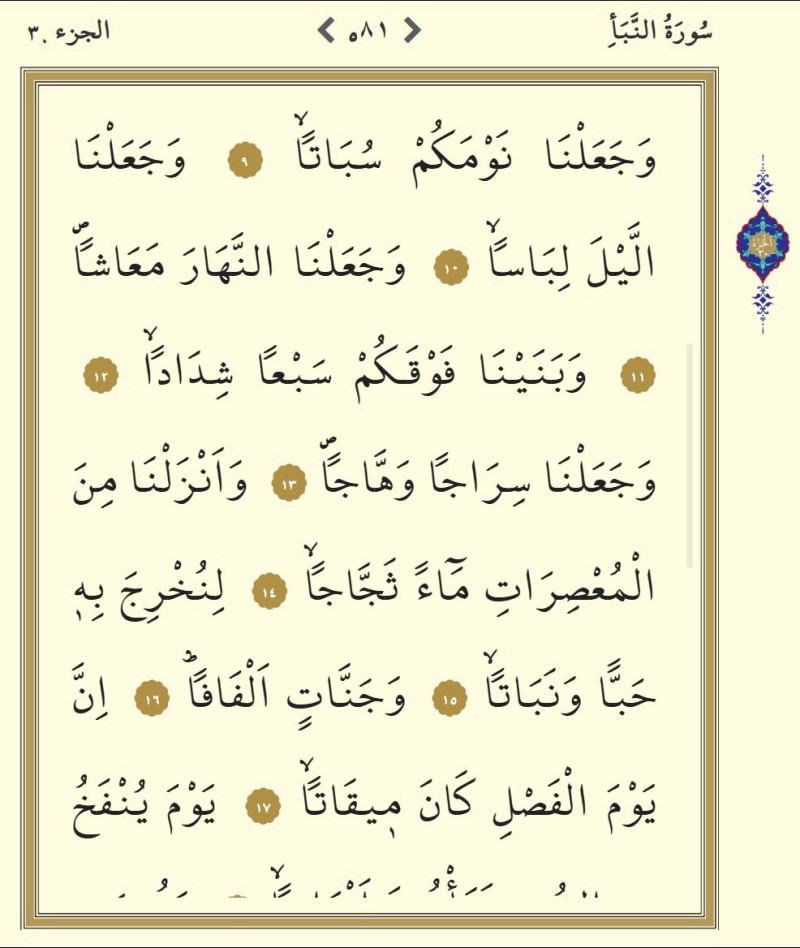 سُورَةُ النَّبَأِ ٥٨١ الجزء ٣٠
وَجَعَلْنَا نَوْمَكُمْ سُبَاتاًۙ ٩ وَجَعَلْنَا
الَّيْلَ لِبَاساًۙ ١٠ وَجَعَلْنَا النَّهَارَ مَعَاشاًࣕ
١١ وَبَنَيْنَا فَوْقَكُمْ سَبْعًا شِدَاداًۙ ١٢
وَجَعَلْنَا سِرَاجًا وَهَّاجاًࣕ ١٣ وَاَنْزَلْنَا مِنَ
الْمُعْصِرَاتِ مَٓاءً ثَجَّاجاًۙ ١٤ لِنُخْرِجَ بِهٖ
حَبًّا وَنَبَاتاًۙ ١٥ وَجَنَّاتٍ اَلْفَافاًؕ ١٦ اِنَّ
يَوْمَ الْفَصْلِ كَانَ مٖيقَاتاًۙ ١٧ يَوْمَ يُنْفَخُ